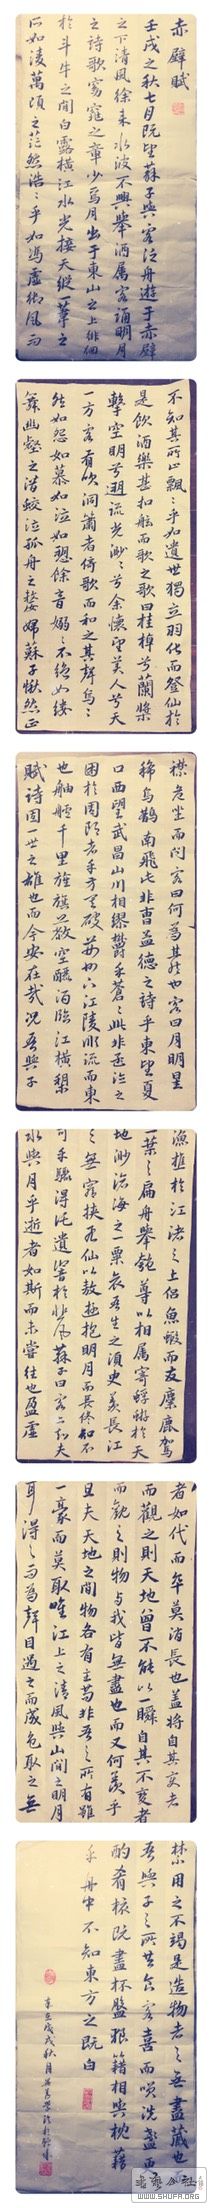 赤壁賦
壬戌之秋七月既望蘇子與客泛舟遊于赤壁
之下清風徐來水波不興舉酒屬客誦明月
之詩歌窈窕之章少焉月出于東山之上徘徊
於斗牛之間白露橫江水光接天縱一葦之
所如凌萬頃之茫然浩々乎如馮虛御風而
不知其所止飄々乎如遺世獨立羽化而登仙於
是飲酒樂甚扣舷而歌之歌曰桂棹兮蘭槳
擊空明兮溯流光渺々兮余懷望美人兮天
一方客有吹洞簫者倚歌而和之其聲烏々
然如怨如慕如泣如愬餘音嫋々不絕如縷
舞幽壑之潛蛟泣孤舟之嫠婦蘇子愀然正
襟危坐而問客曰何為其然也客曰月明星
稀烏鵲南飛此非曹孟德之詩乎東望夏
口西望武昌山川相繆鬱乎蒼々此非孟德之
困於周郎者乎方其破荊州下江陵順流而東
也舳艫千里旌旗蔽空釃酒臨江橫槊
賦詩固一世之雄也而今安在哉況吾與子
漁樵於江渚之上侶魚蝦而友麋鹿駕
一葉之扁舟舉匏尊以相屬寄蜉蝣於天
地渺滄海之一粟哀吾生之須臾羨長江
之無窮挾飛仙以遨遊抱明月而長終知不
可乎驟得託遺響於悲風蘇子曰客亦知夫
水與月乎逝者如斯而未嘗往也盈虛
者如代而卒莫消長也蓋將自其變者
而觀之則天地曾不能以一瞬自其不變者
而觀之則物与我皆無盡也而又何羨乎
且夫天地之間物各有主苟非吾之所有雖
一毫而莫取唯江上之清風與山間之明月
耳得之而為聲目遇之而成色取之無
禁用之不竭是造物者之無盡藏也而
吾與子之所共食客喜而笑洗盞更
酌肴核既盡杯盤狼籍相與枕藉
乎舟中不知東方之既白
WWW.SHUFA.ORG